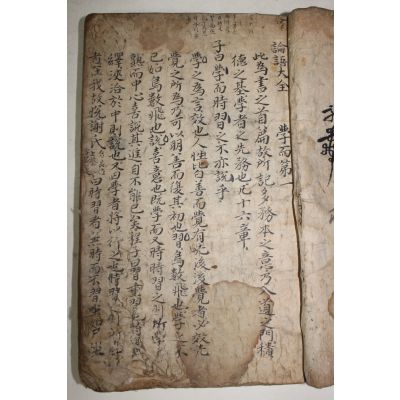 論語大全
學而第一
此為書之首篇故所記多務本之意乃入道之門積
德之基學者之先務也凡十六章
子曰學而時習之不亦說乎
學之為言效也人性皆善而覺有先後後覺者必效先
覺之所為乃可以明善而復其初也習鳥數飛也學之不
已如鳥數飛也說喜意也既學而又時時習之則所學
熟而中心喜說其進自不能已矣程子曰習重習也時復思
繹浹洽於中則說也又曰學者將以行之也時習之則所學
者在我故悅謝氏曰時習者無時而不習